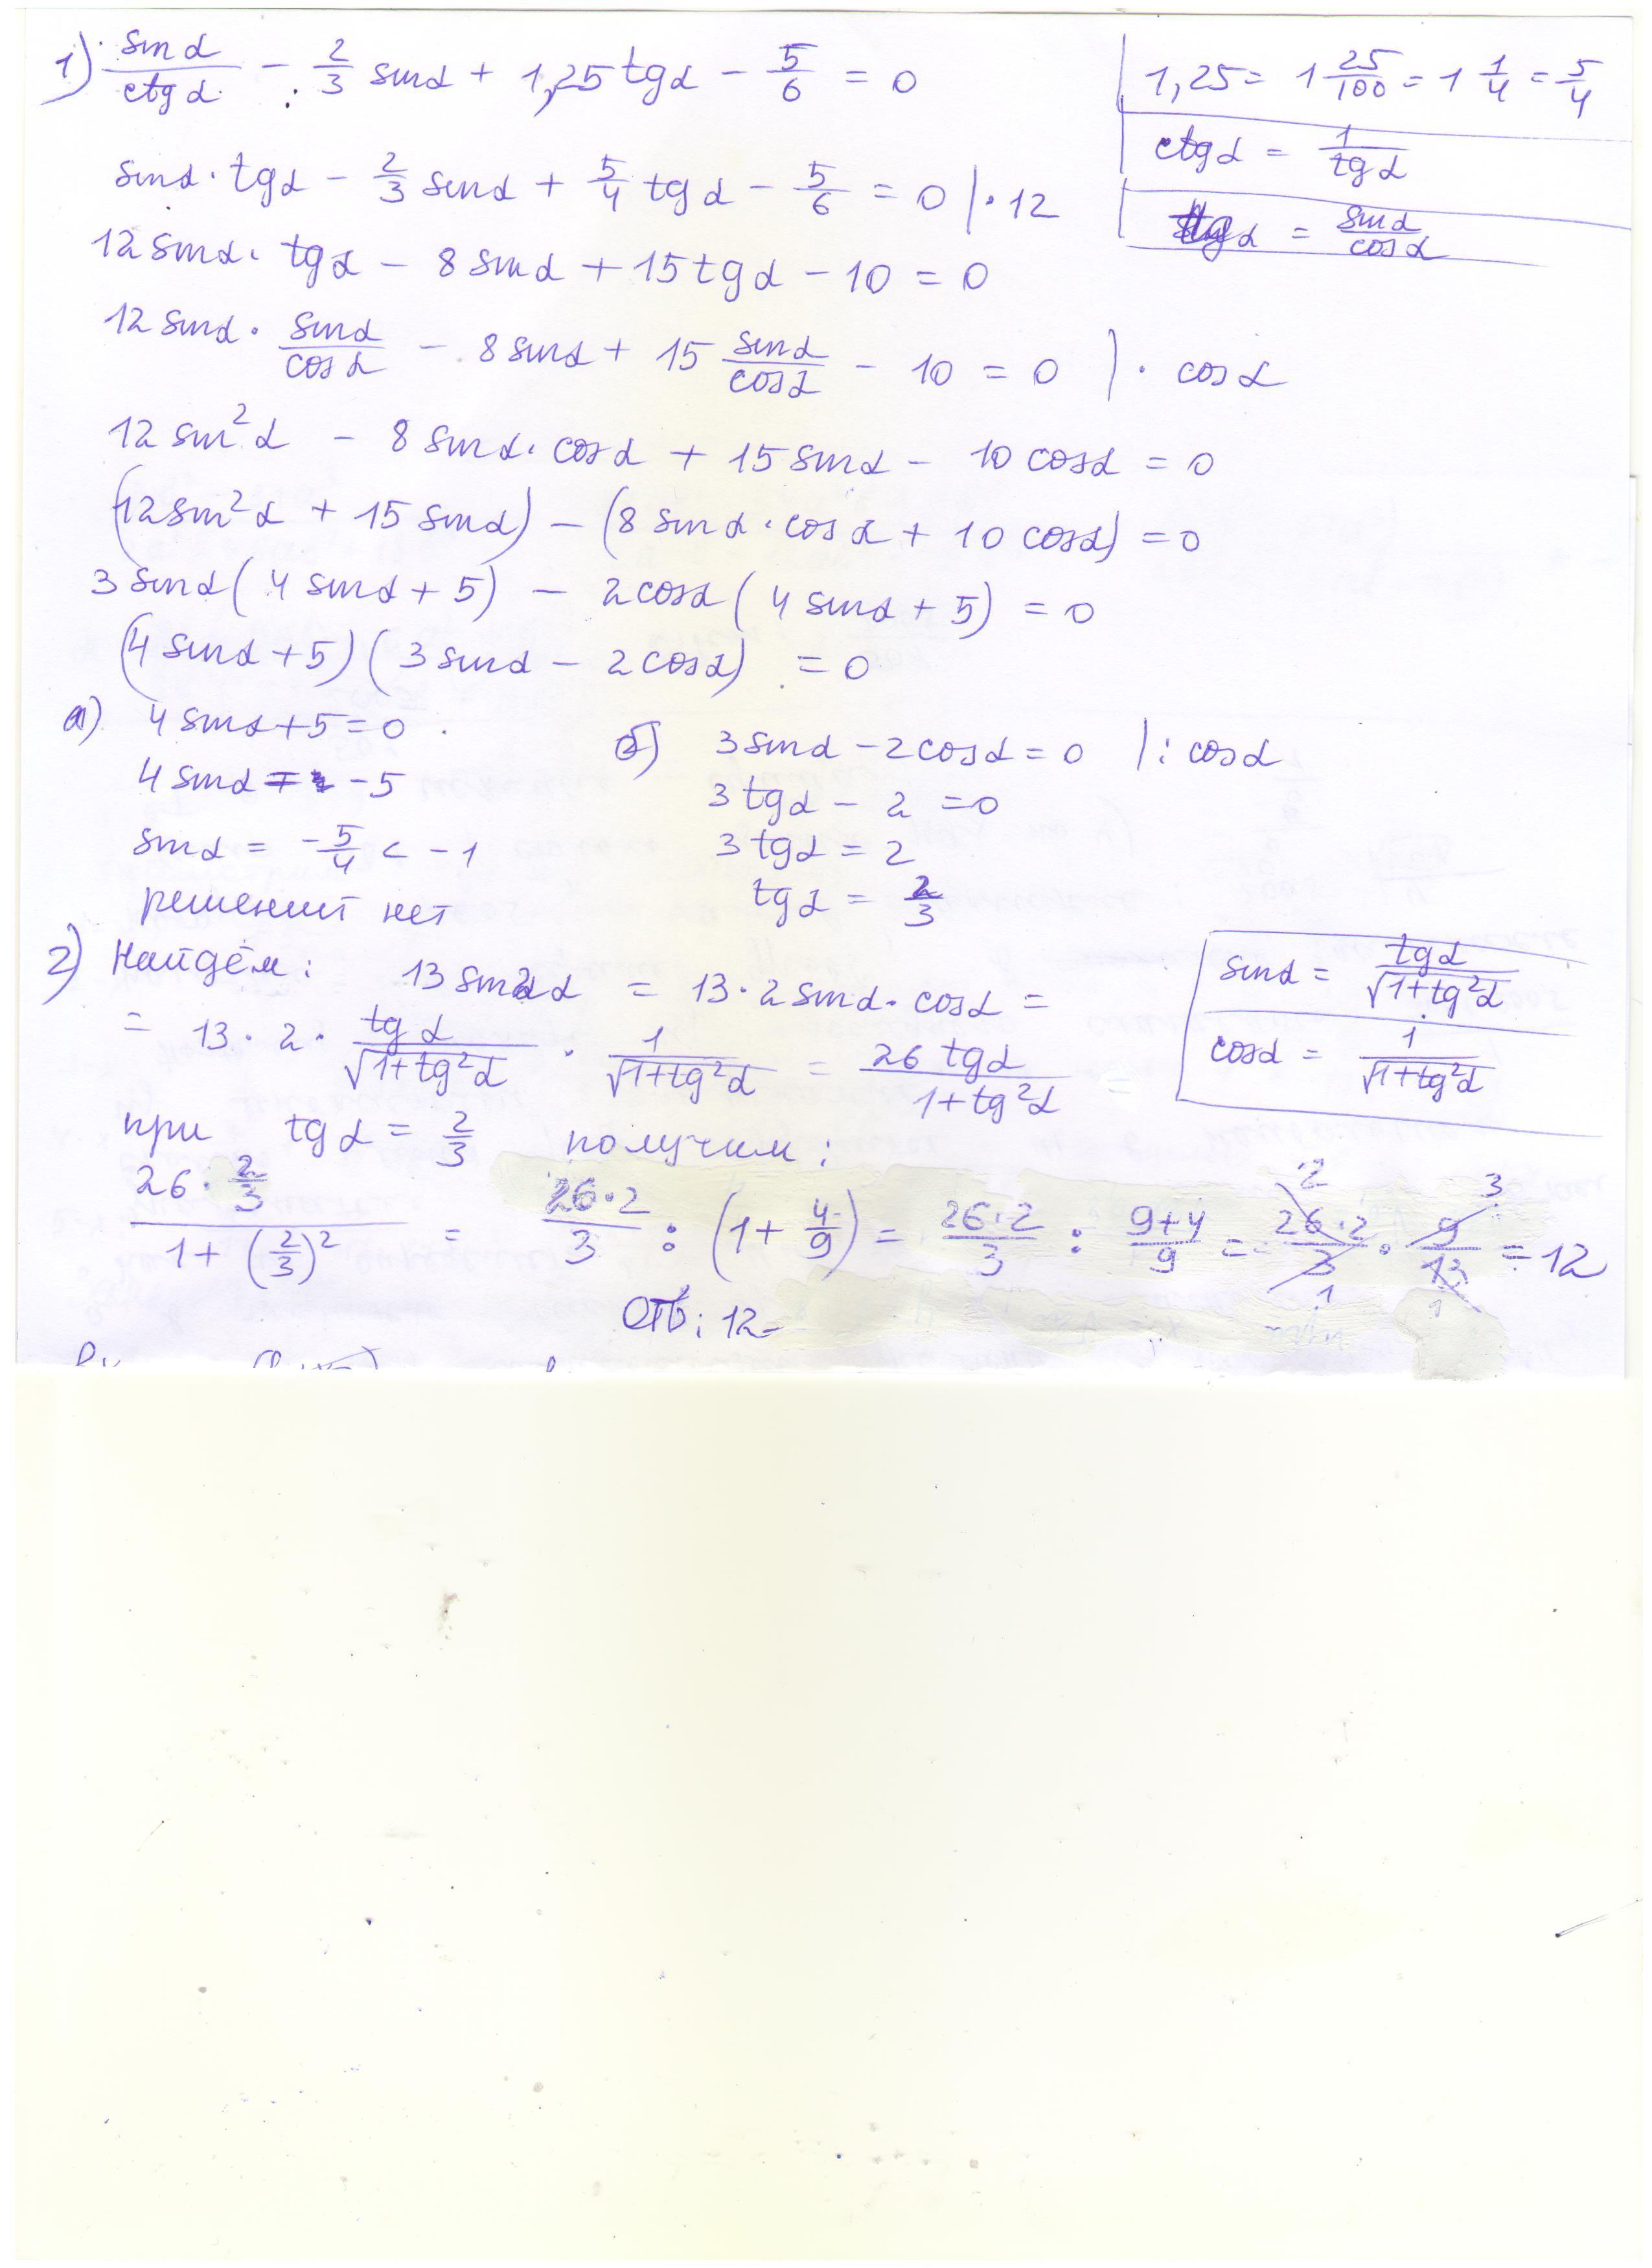 1) sinα/ctgα - 2/3 sinα + 1,25 tgα - 5/6 = 0
1,25 = 1 25/100 = 1 1/4 = 5/4
ctgα = 1/tgα
tgα = sinα/cosα
sinα · tgα - 2/3 sinα + 5/4 tgα - 5/6 = 0 | · 12
12 sinα · tgα - 8 sinα + 15 tgα - 10 = 0
12 sinα · sinα/cosα - 8 sinα + 15 sinα/cosα - 10 = 0 | · cosα
12 sin²α - 8 sinα · cosα + 15 sinα - 10 cosα = 0
(12 sin²α + 15 sinα) - (8 sinα · cosα + 10 cosα) = 0
3 sinα (4 sinα + 5) - 2 cosα (4 sinα + 5) = 0
(4 sinα + 5) (3 sinα - 2 cosα) = 0
а) 4 sinα + 5 = 0
4 sinα = -5
sinα = -5/4 < -1
решений нет
б) 3 sinα - 2 cosα = 0 | : cosα
3 tgα - 2 = 0
3 tgα = 2
tgα = 2/3
2) Найдём: 13 sin2α = 13 · 2 sinα · cosα =
= 13 · 2 · tgα/√(1+tg²α) · 1/√(1+tg²α) = 26 tgα/(1+tg²α) =
sinα = tgα/√(1+tg²α)
cosα = 1/√(1+tg²α)
при tgα = 2/3 получим:
(26 · 2/3)/(1 + (2/3)²) = 26·2/3 : (1 + 4/9) = 26·2/3 : (9+4)/9 = 26·2/3 · 9/13 = 12
Отв: 12